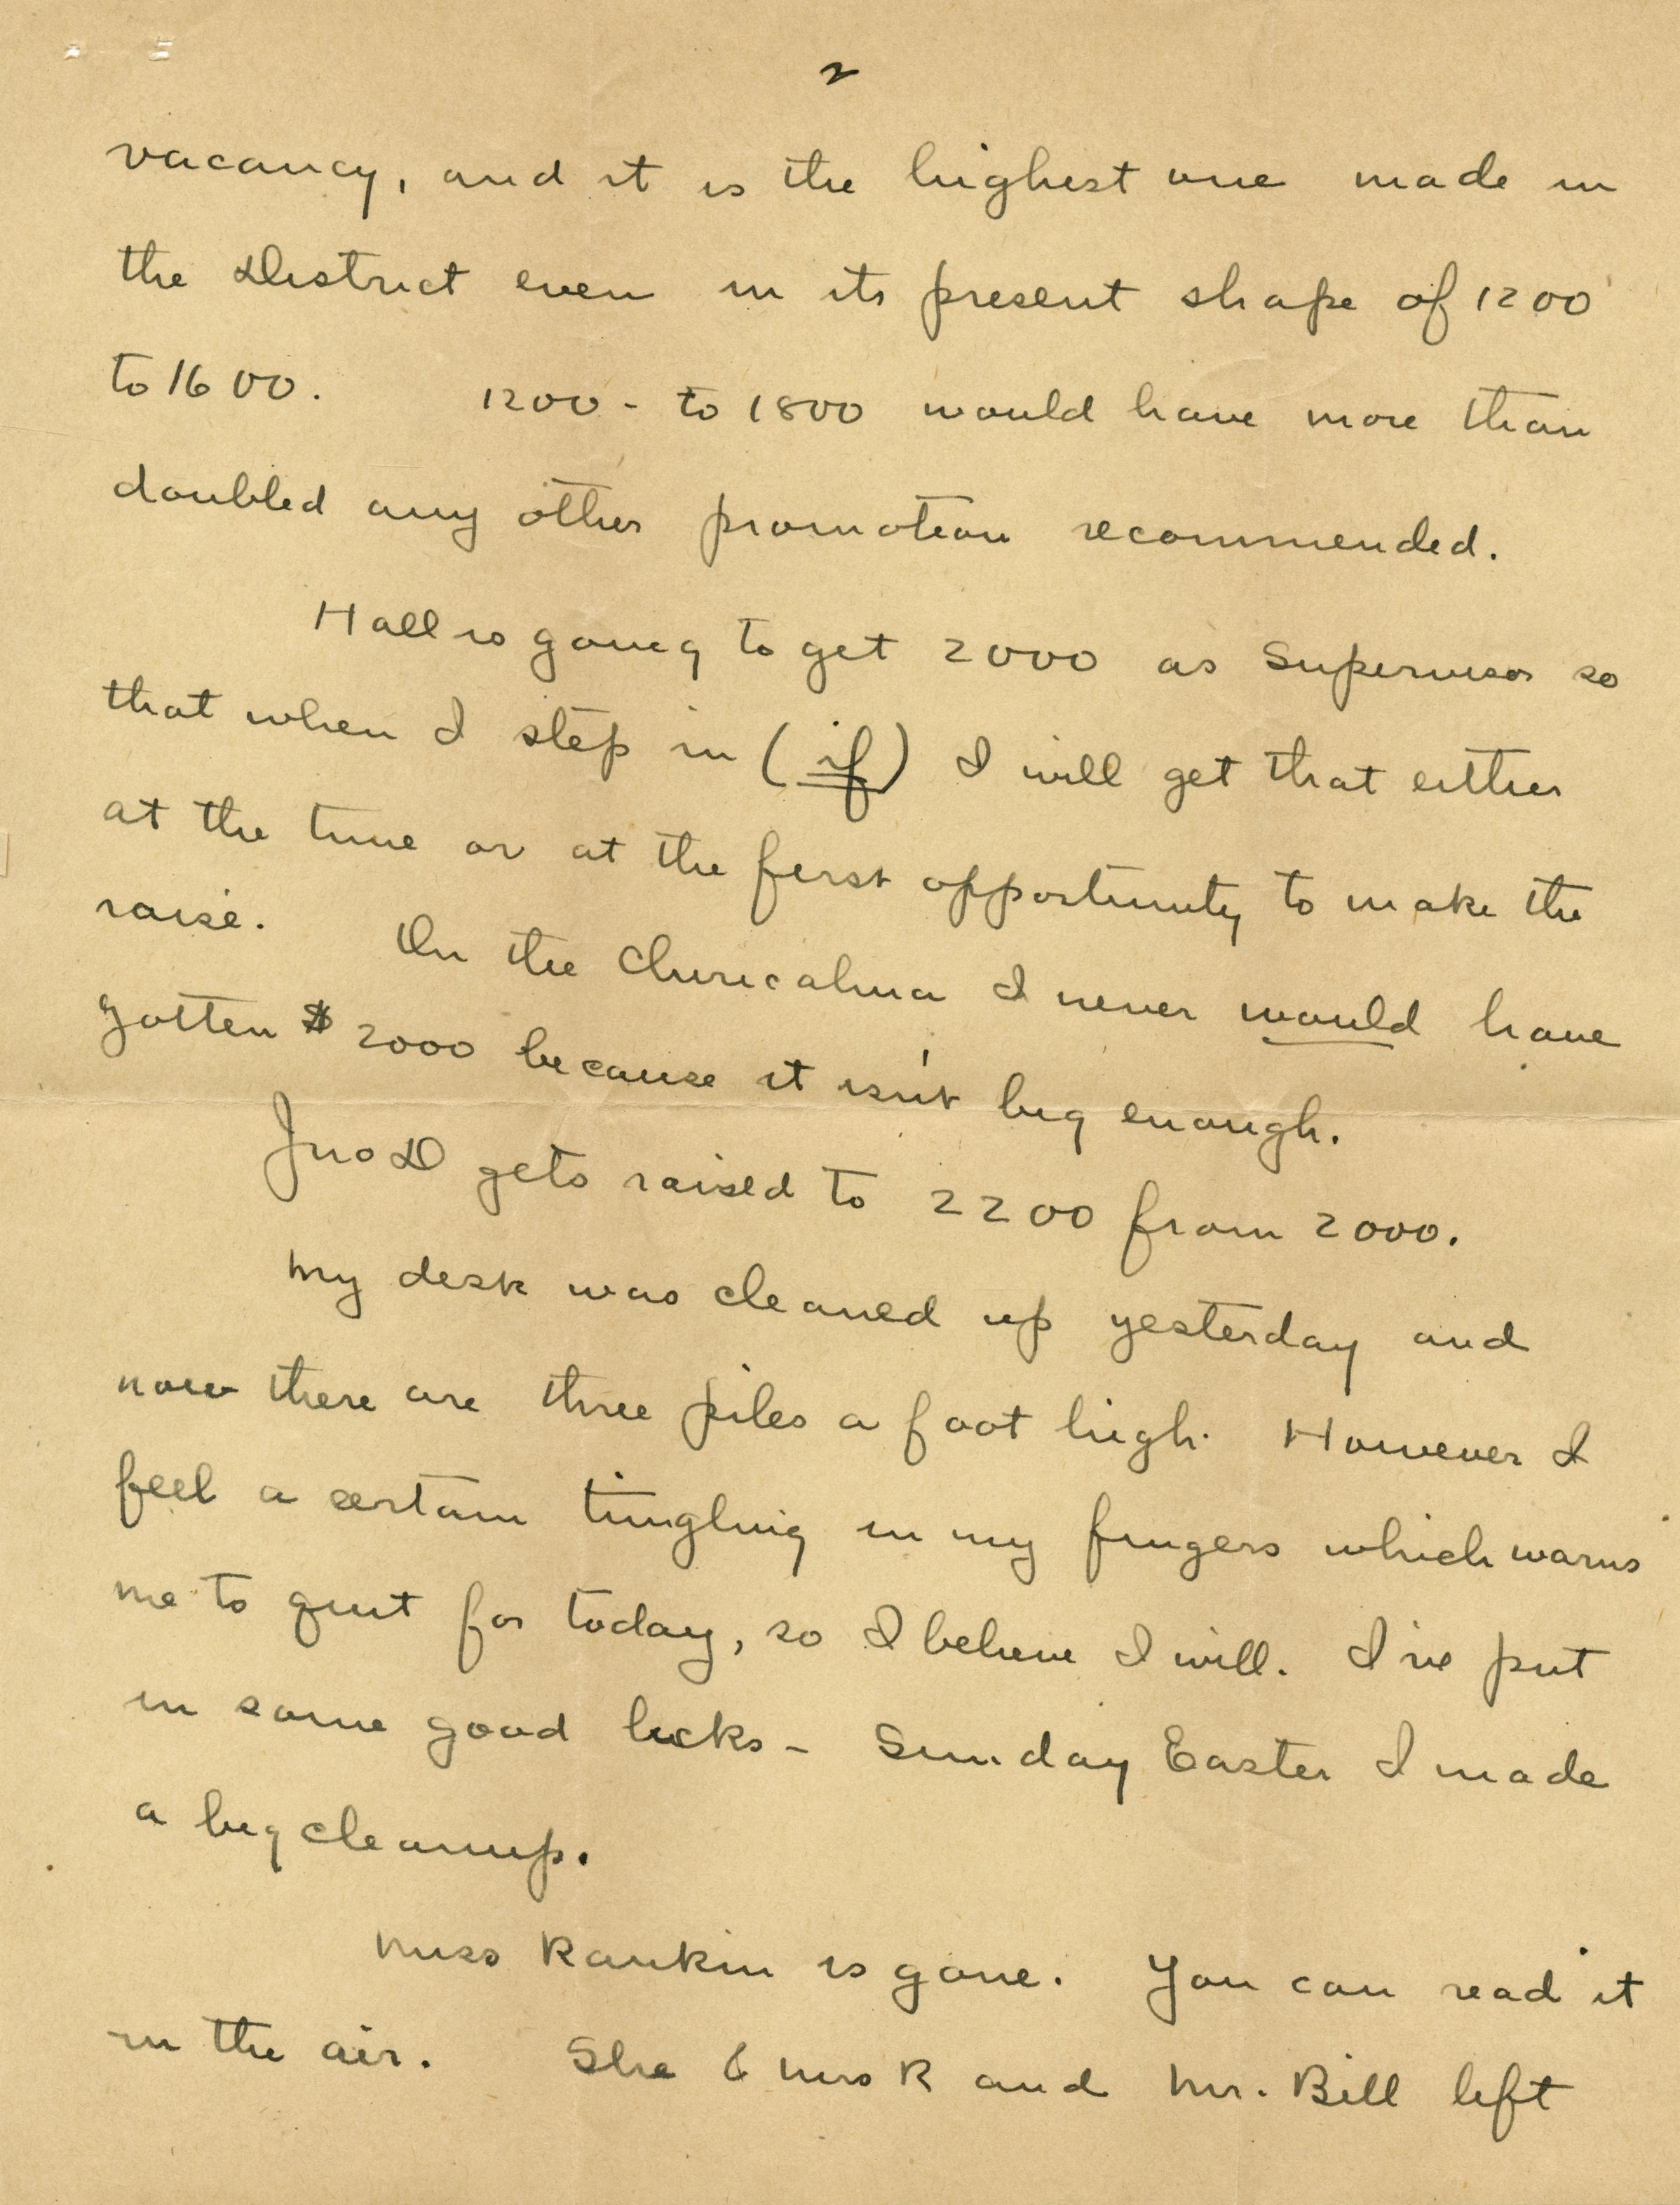 2
vacancy, and it is the highest one made in
the District even in its present shape of 1200
to 1600. 1200 - to 1800 would have more than
doubled any other promotion recommended.
Hall is going to get 2000 as Supervisor so
that when I step in (if) I will get that either
at the time or at the first opportunity to make the
raise. On the Chiricahua I never would have
gotten $2000 because it isn't big enough.
Jno D gets raised to 2200 from 2000.
My desk was cleaned up yesterday and
now there are three piles a foot high. However I
feel a certain tingling in my fingers which warns
me to quit for today, so I believe I will. I've put
in some good licks - Sunday Easter I made
a big cleanup.
Miss Rankin is gone. You can read it
in the air. She & Mrs R and Mr. Bill left